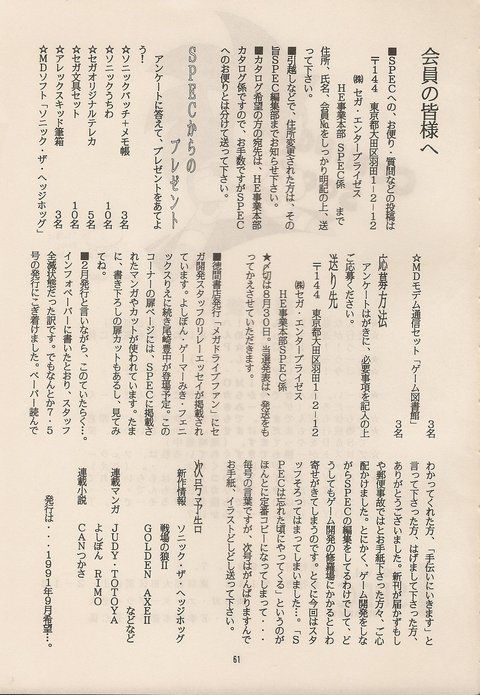 会員の皆様へ
■SPECへの、お便り・質問などの投稿は
〒144 東京都大田区羽田1-2-12
㈱セガ・エンタープライゼス
HE事業本部 SPEC係 まで
住所、氏名、会員№をしっかり明記の上、送
って下さい。
■引越しなどで、住所変更された方は、その
旨SPEC編集部までお知らせ下さい。
■カタログ希望の方の宛先は、HE事業本部
カタログ係ですので、お手数ですがSPEC
へのお便りとは分けて送って下さい。
SPECからの
プレゼント
アンケートに答えて、プレゼントをあてよ
う!
☆ソニックバッチ+メモ帳 3名
☆ソニックうちわ 10名
☆セガオリジナルテレカ 5名
☆セガ文具セット 10名
☆アレックスキッド筆箱 3名
☆MDソフト「ソニック・ザ・ヘッジホッグ」
3名
☆MDモデム通信セット「ゲーム図書館」
3名
応募方法
アンケートはがきに、必要事項を記入の上
ご応募ください。
送り先
〒144 東京都大田区羽田1-2-12
㈱セガ・エンタープライゼス
HE事業本部SPEC係
★〆切は8月30日。当選発表は、発送をも
ってかえさせていただきます。
■徳間書店発行「メガドライブファン」にセ
ガ開発スタッフのリレーエッセイが掲載され
ています。よしぼん・ゲーマーみき・フェニ
ックスりえに続き尾崎豊中が登場予定。この
コーナーの扉ページには、SPECに掲載さ
れたマンガやカットが使われています。たま
に、書き下ろしの扉カットもあるし、見てみ
てね。
■2月発行と言いながら、このていたらく…。
インフォペーパーに書いたとおり、スタッフ
全滅状態だった訳です。でもなんとか7・5
号の発行にこぎ着けました。ペーパー読んで
わかってくれた方、「手伝いにいきます」と
言って下さった方、はげまして下さった方、
ありがとうございました。新刊が届かずもし
や郵便事故ではとお手紙下さった方々、ご心
配かけました。とにかく、ゲーム開発をしな
がらSPECの編集をしてるわけでして、ど
うしてもゲーム開発の修羅場にかかるとしわ
寄せがきてしまうのです。とくに今回はスタ
ッフそろってはまってしまいました…。「S
PECは忘れた頃にやってくる」というのが
ほんとに定番コピーになってしまって・・・
毎号の言葉ですが、次号はがんばりますんで
お手紙、イラストどしどし送って下さい。
次号予告
新作情報 ソニック・ザ・ヘッジホッグ
戦場の狼Ⅱ
GOLDEN AXEⅡ
などなど
連載マンガ JUDY・TOTOYA
よしぼん RIMO
連載小説 CANつかさ
発行は・・・1991年9月希望…。
61